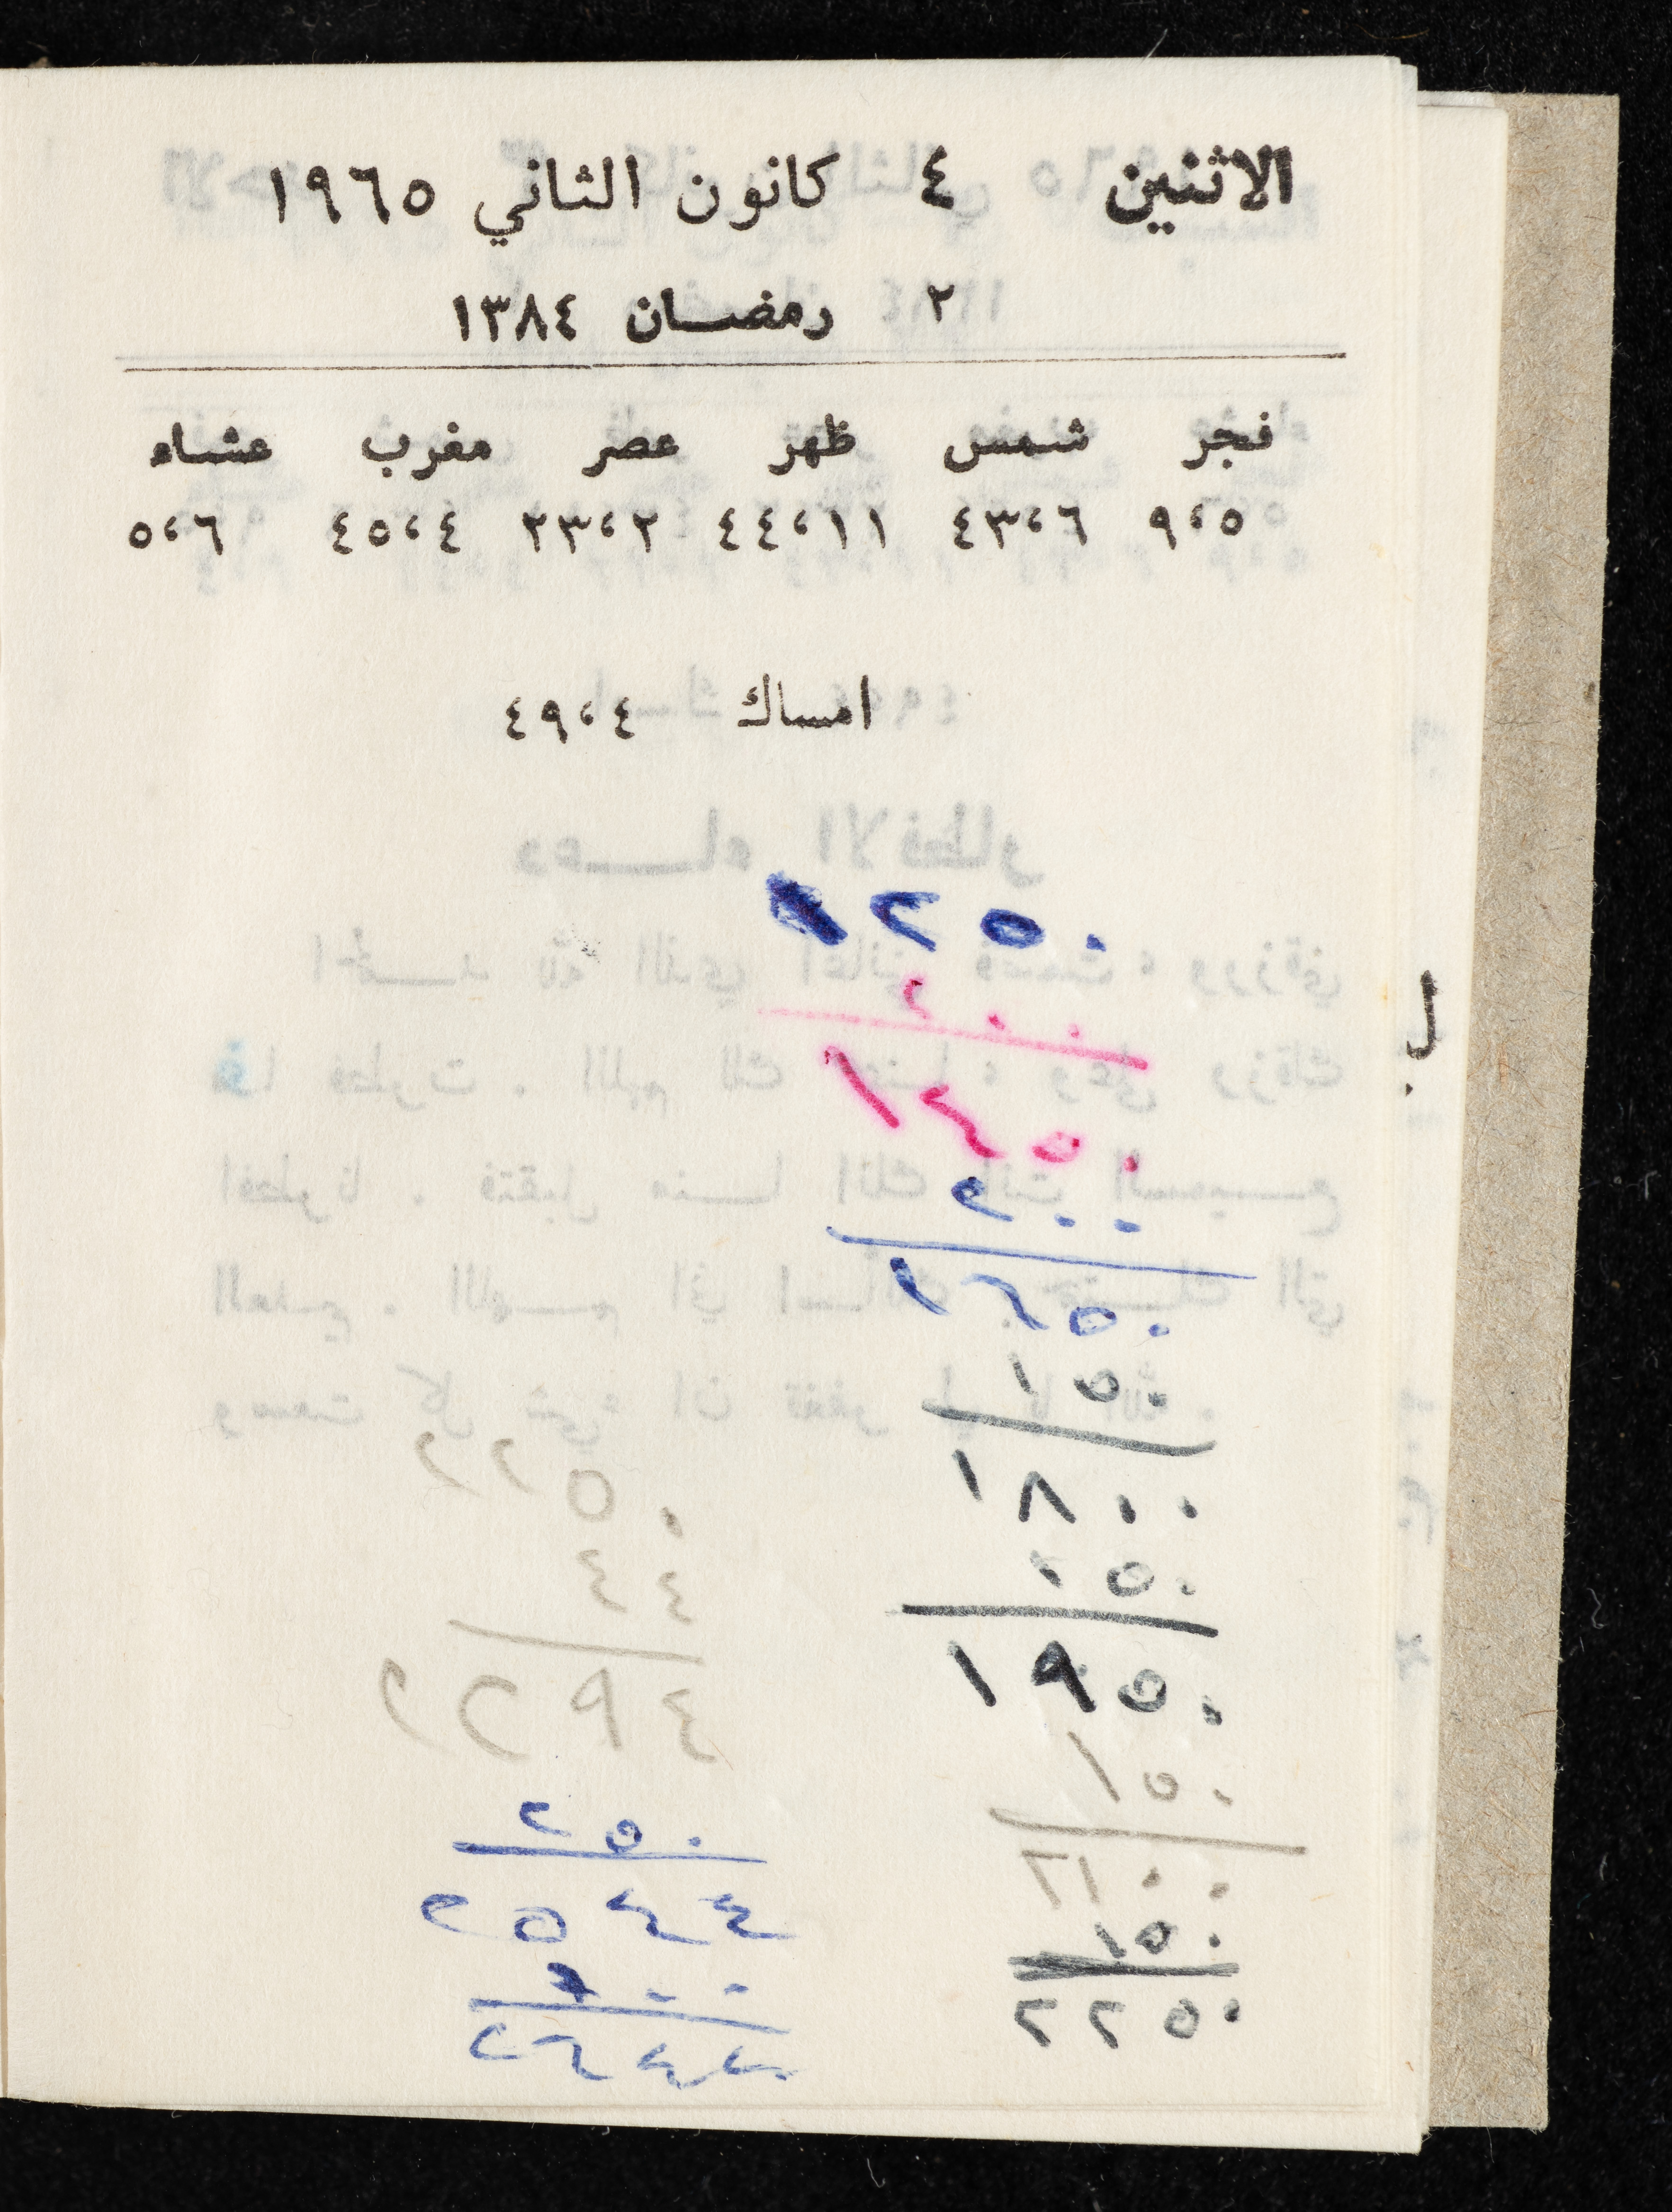 الاثنين ٤ كانون الثاني ١٩٦٥
٢ رمضان ١٣٨٤
فجر شمس ظهر عصر مغرب عشاء
٩،٥ ٤٣،٦ ٤٤،١١ ٢٣،٢ ٤٥،٤ ٥،٦
امساك ٤٩،٤
١٢٥٠
٢٠٠
١٤٥٠
٢٠٠
١٦٥٠
١٥٠
١٨٠٠
١٥٠
١٩٥٠
١٥٠
٢١٠٠
١٥٠
٢٢٥٠
٢٢٥٠
٤٤
٢٢٩٤
٢٥٠
٢٥٤٤
٢٦٤٤